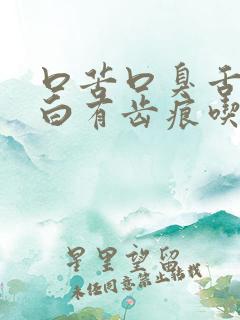 口苦口臭舌
白有齿痕喫
星里望留
未经同意禁止转载